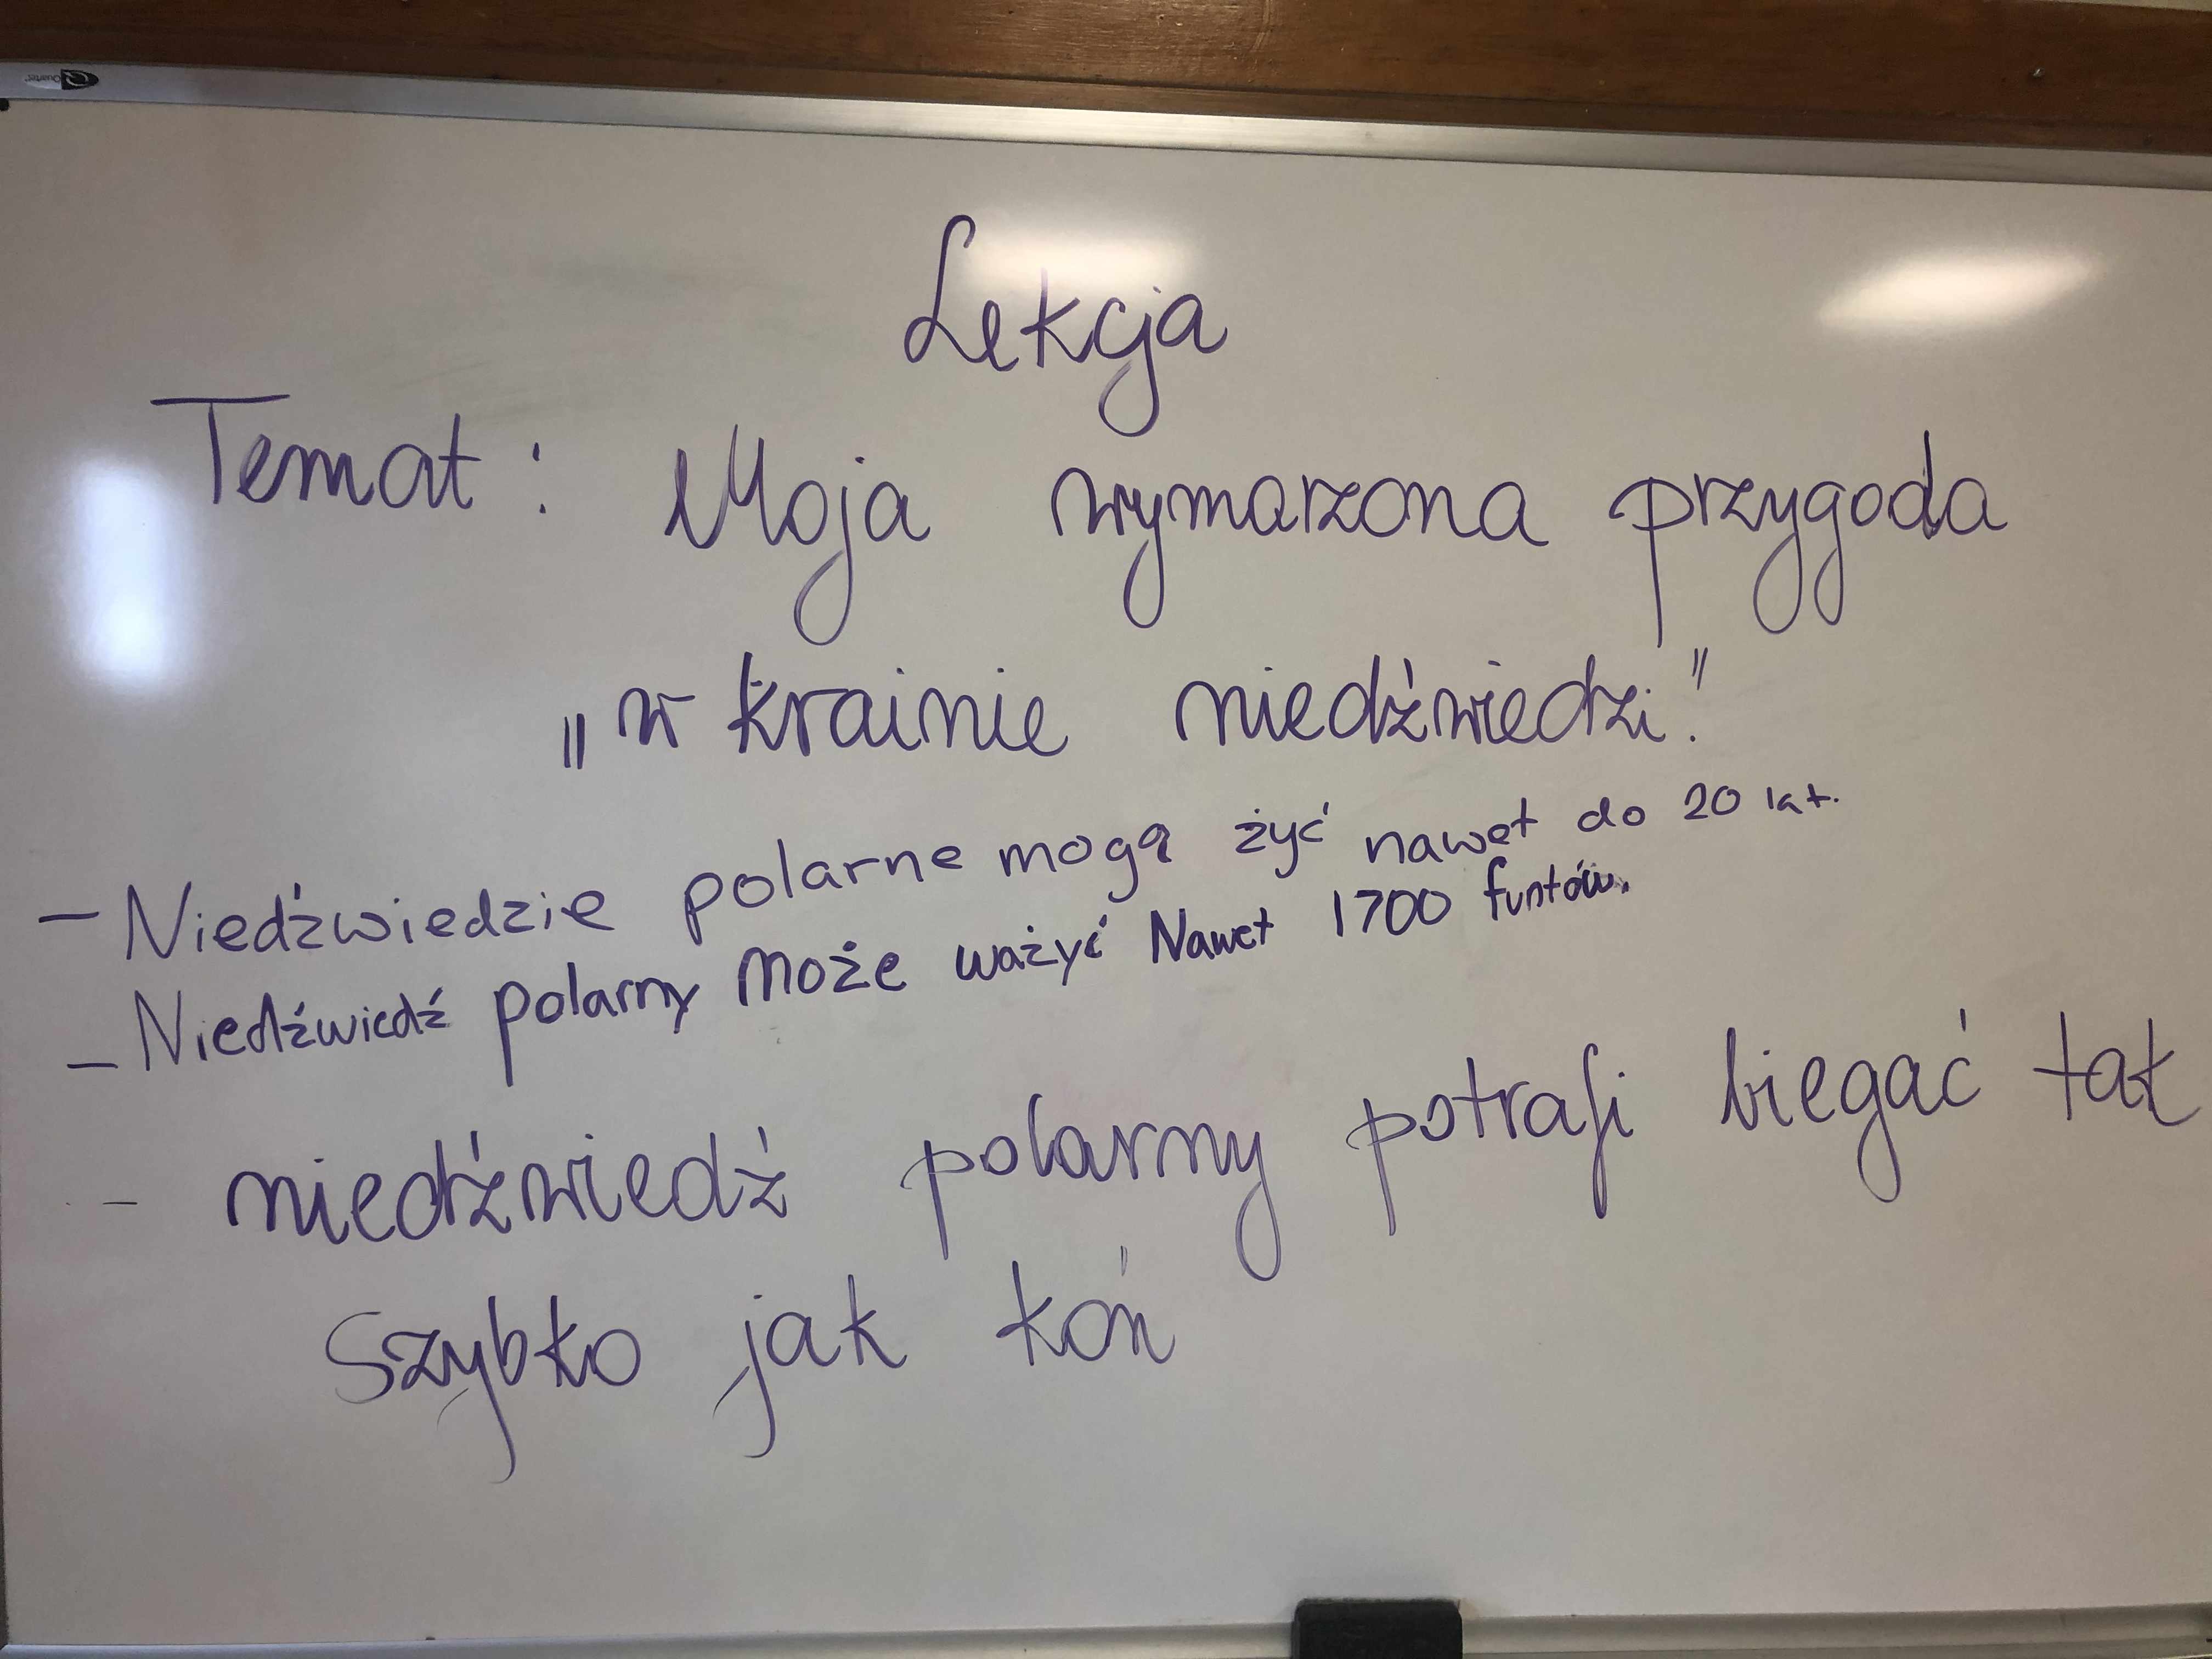 Quartet
Lekcja
Temat: Moja wymarzona przygoda
„w krainie niedźwiedzi."
- Niedźwiedzie polarne mogą żyć nawet do 20 lat.
- Niedźwiedź polarny może ważyć Nawet 1700 funtów.
- niedźwiedź polarny potrafi biegać tak
szybko jak koń